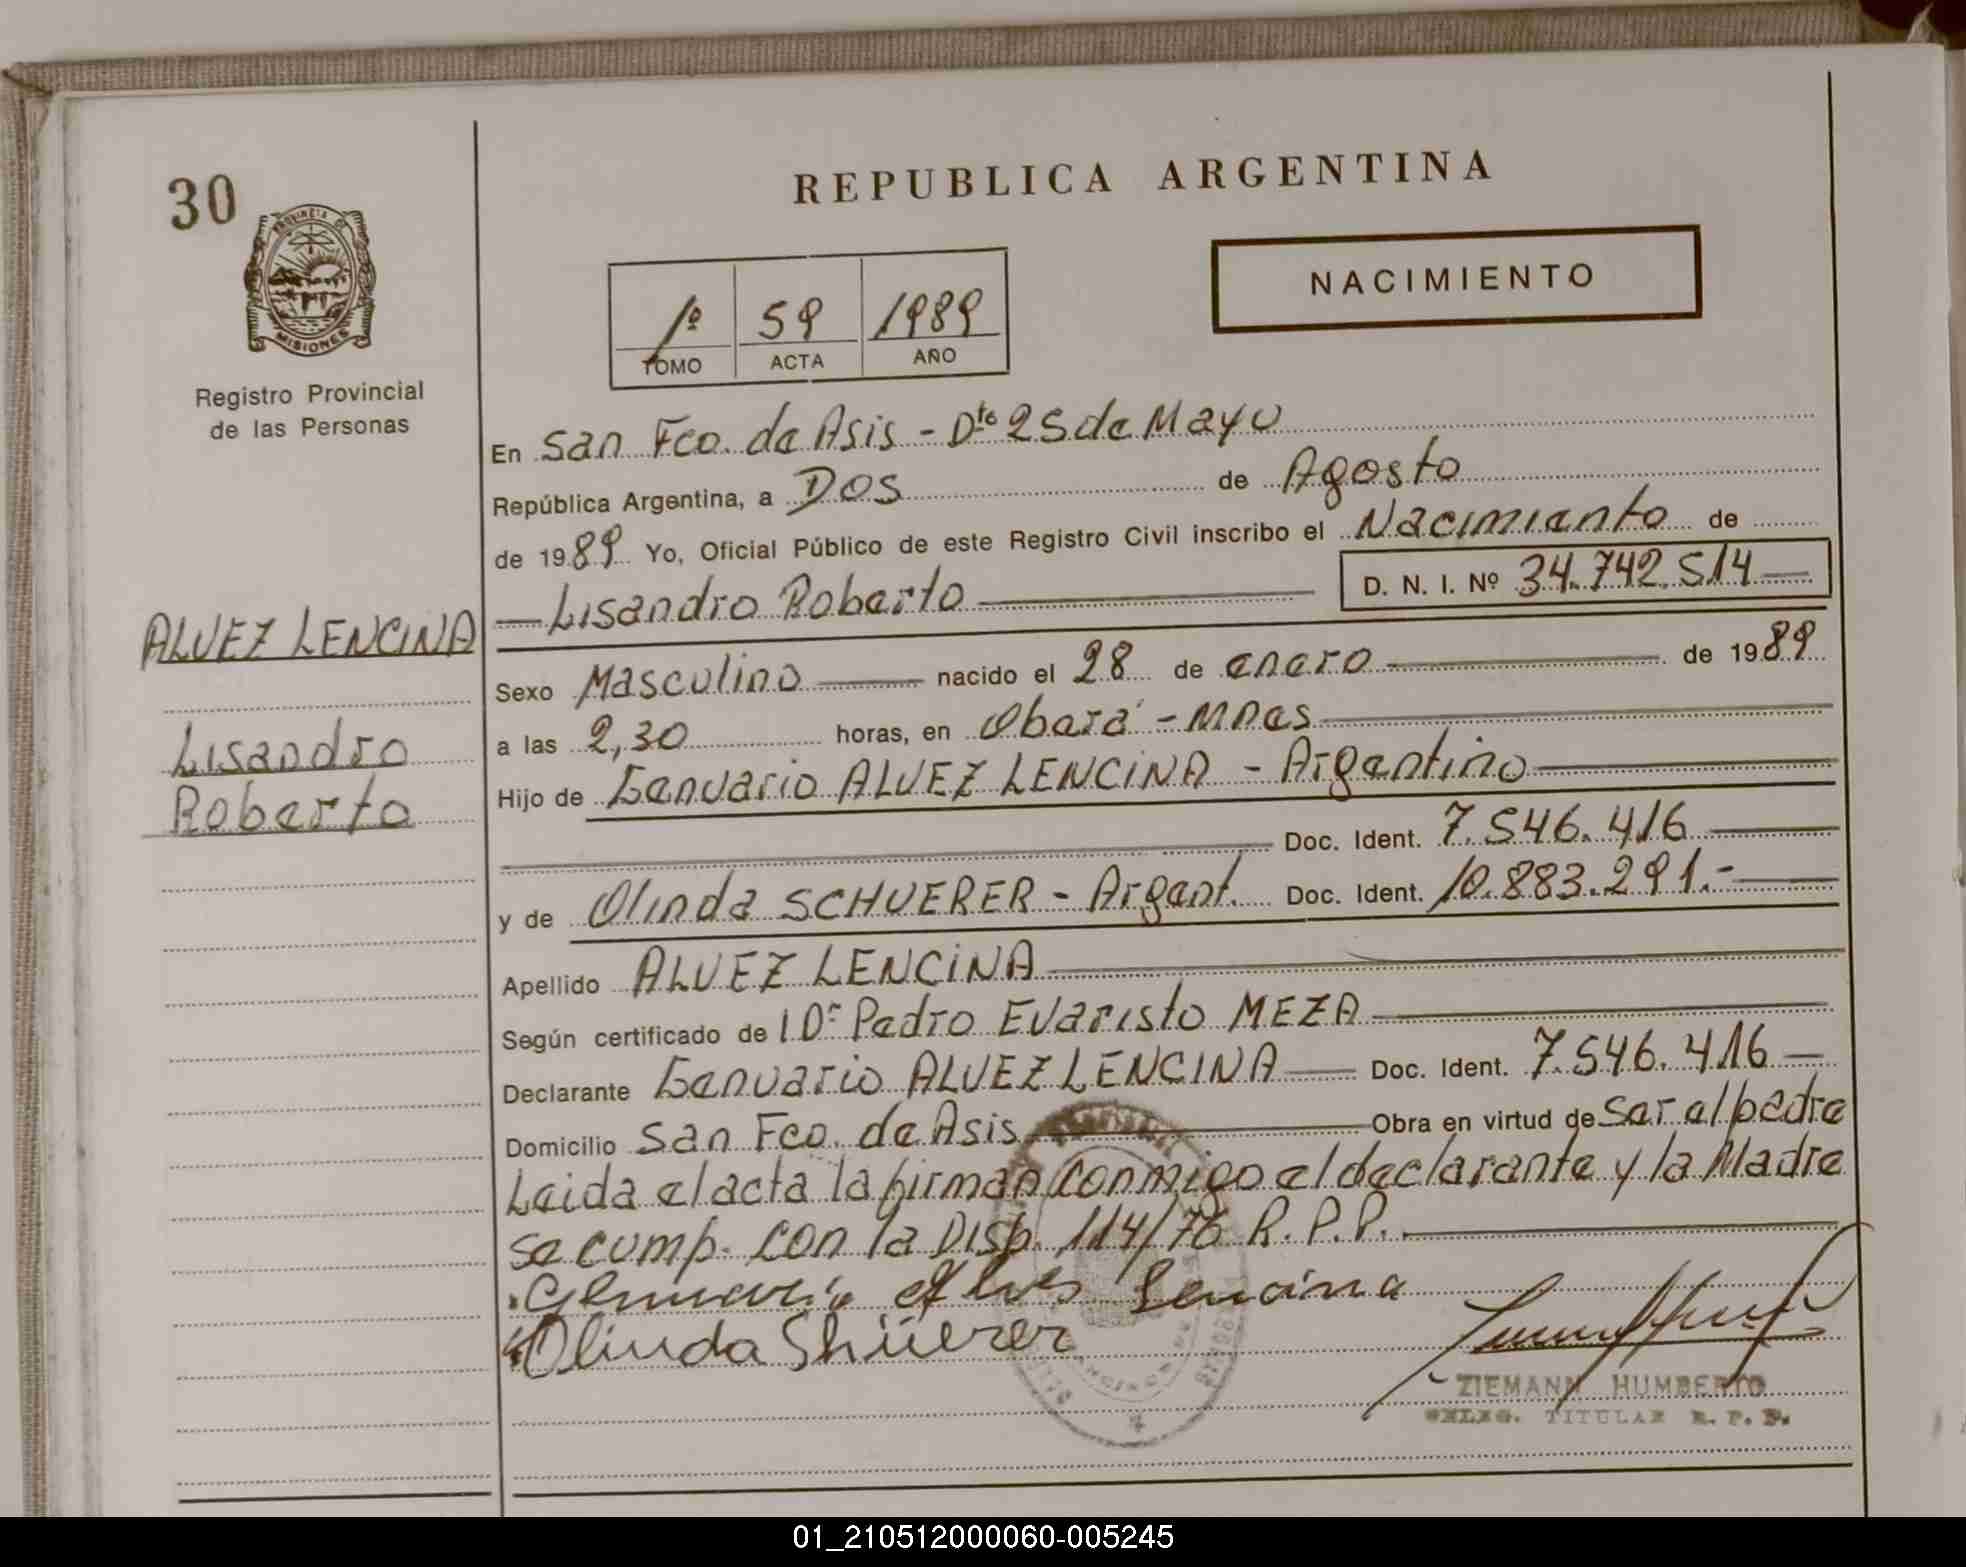 30
REPUBLICA ARGENTINA
PROVINCIA DE
MISIONES
NACIMIENTO
1º 59 1989
TOMO ACTA AÑO
Registro Provincial
de las Personas
En San Fco. de Asis - Dto 25 de Mayo
República Argentina, a Dos de Agosto
de 1989 Yo, Oficial Público de este Registro Civil inscribo el Nacimiento de
Lisandro Roberto D. N. I. Nº 34.742.514
ALVEZ LENCINA
Sexo Masculino nacido el 28 de enero de 1989
Lisandro
a las 2,30 horas, en Oberá - Mnes
Roberto
Hijo de Genuario ALVEZ LENCINA - Argentino
Doc. Ident. 7.546.416
y de Olinda SCHUERER - Argent. Doc. Ident. 10.883.291.-
Apellido ALVEZ LENCINA
Según certificado de Dr Pedro Evaristo MEZA
Declarante Genuario ALVEZ LENCINA Doc. Ident. 7.546.416
Domicilio San Fco. de Asis Obra en virtud de Ser el padre
Leida el acta la firman conmigo el declarante y la Madre
se cump. con la Disp. 114/76 R.P.P.
Genuario Alves Lencina
Olinda Shüerer
ZIEMANN HUMBERTO
DELEG. TITULAR R. P. P.
01_210512000060-005245